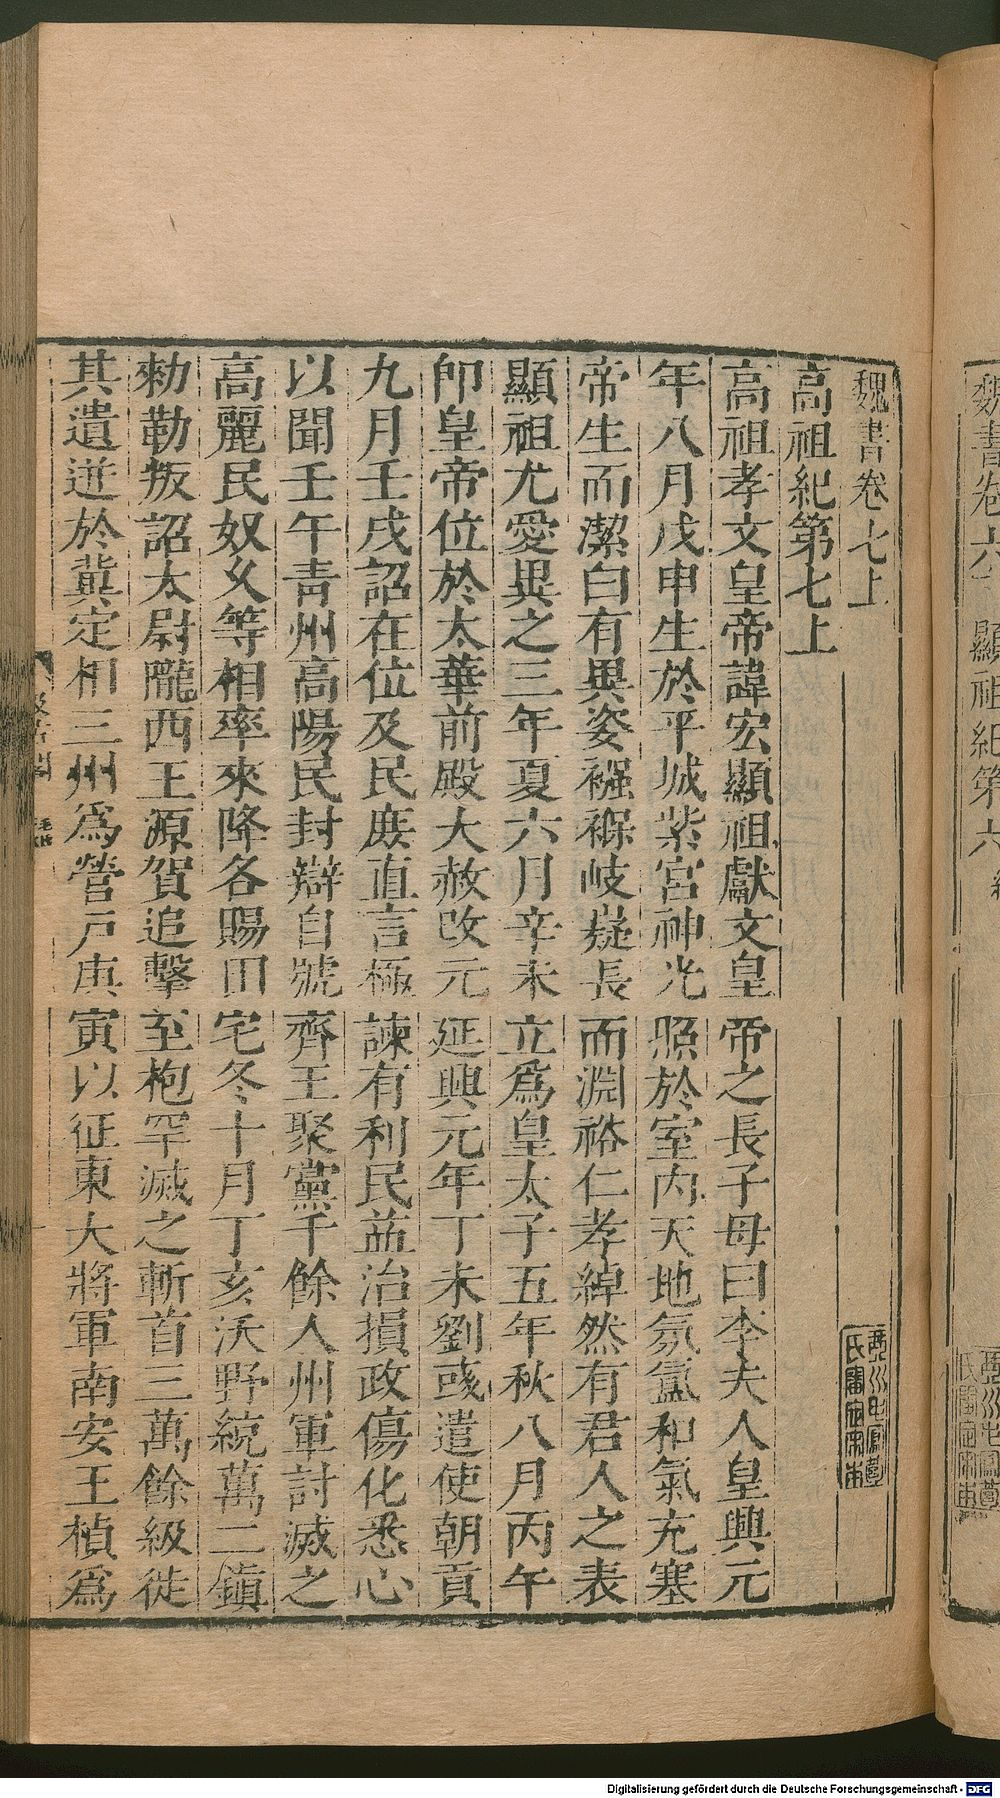 魏書卷七上
高祖紀第七上
高祖孝文皇帝諱宏顯祖獻文皇帝之長子母曰李夫人皇興元
年八月戊申生於平城紫宮神光照於室內天地氛氳和氣充塞
帝生而潔白有異姿襁褓岐嶷長而淵裕仁孝綽然有君人之表
顯祖尤愛異之三年夏六月辛未立爲皇太子五年秋八月丙午
卽皇帝位於太華前殿大赦改元延興元年丁未劉彧遣使朝貢
九月壬戌詔在位及民庶直言極諫有利民益治損政傷化悉心
以聞壬午青州高陽民封辯自號齊王聚黨千餘人州軍討滅之
高麗民奴久等相率來降各賜田宅冬十月丁亥沃野統萬二鎮
勑勒叛詔太尉隴西王源賀追擊至枹罕滅之斬首三萬餘級徙
其遺迸於冀定相三州爲營戶庚寅以征東大將軍南安王楨爲
魏書卷六
顯祖紀第六
Digitalisierung gefördert durch die Deutsche Forschungsgemeinschaft - DFG